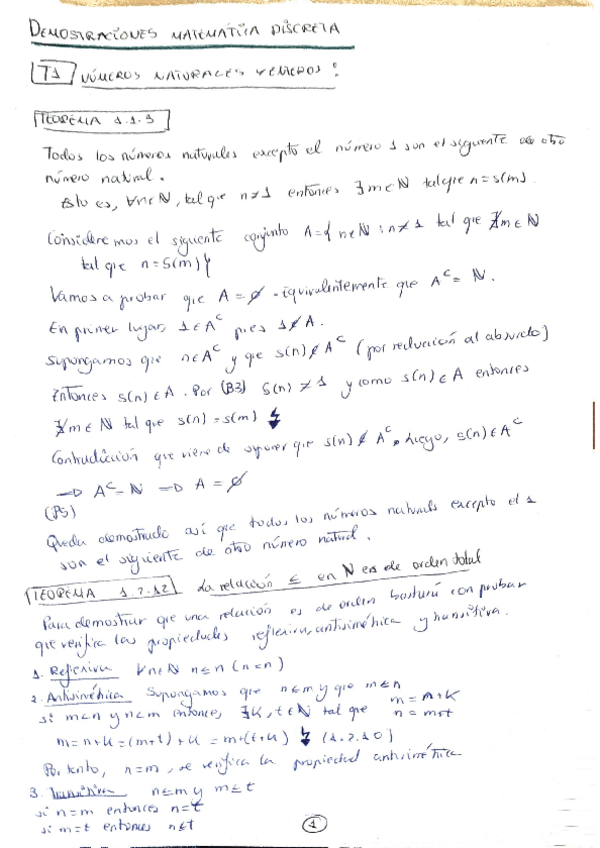 DEMOSTRACIONES MATEMÁTICA DISCRETA
T1 NÚMEROS NATURALES Y ENTEROS:
TEOREMA 1.1.3
Todos los números naturales excepto el número 1 son el siguiente de otro
número natural.
Esto es, ∀n∈ℕ, tal que n≠1 entonces ∃m∈ℕ tal que n=s(m).
Consideremos el siguiente conjunto A={ n∈ℕ : n≠1 tal que ∄m∈ℕ
tal que n=s(m)}
Vamos a probar que A=∅ - equivalentemente que Aᶜ=ℕ.
En primer lugar, 1∈Aᶜ pues 1∉A.
Supongamos que n∈Aᶜ y que s(n)∉Aᶜ (por reducción al absurdo)
Entonces s(n)∈A. Por (B3) s(n)≠1 y como s(n)∈A entonces
∄m∈ℕ tal que s(n)=s(m) ↯
Contradicción que viene de suponer que s(n)∉Aᶜ, luego, s(n)∈Aᶜ
→ Aᶜ=ℕ → A=∅
(P5)
Queda demostrado así que todos los números naturales excepto el 1
son el siguiente de otro número natural.
TEOREMA 1.2.12 La relación ≤ en ℕ es de orden total
Para demostrar que una relación es de orden bastará con probar
que verifica las propiedades reflexiva, antisimétrica y transitiva.
1. Reflexiva ∀n∈ℕ n≤n (n=n)
2. Antisimétrica Supongamos que n≤m y que m≤n
si m<n y n<m entonces, ∃k,t∈ℕ tal que m=n+k
n=m+t
m=n+k=(m+t)+k=m+(t+k) ↯ (1.2.10)
Por tanto, n=m, se verifica la propiedad antisimétrica
3. Transitiva n≤m y m≤t
si n=m entonces n≤t
si m=t entonces n≤t
1